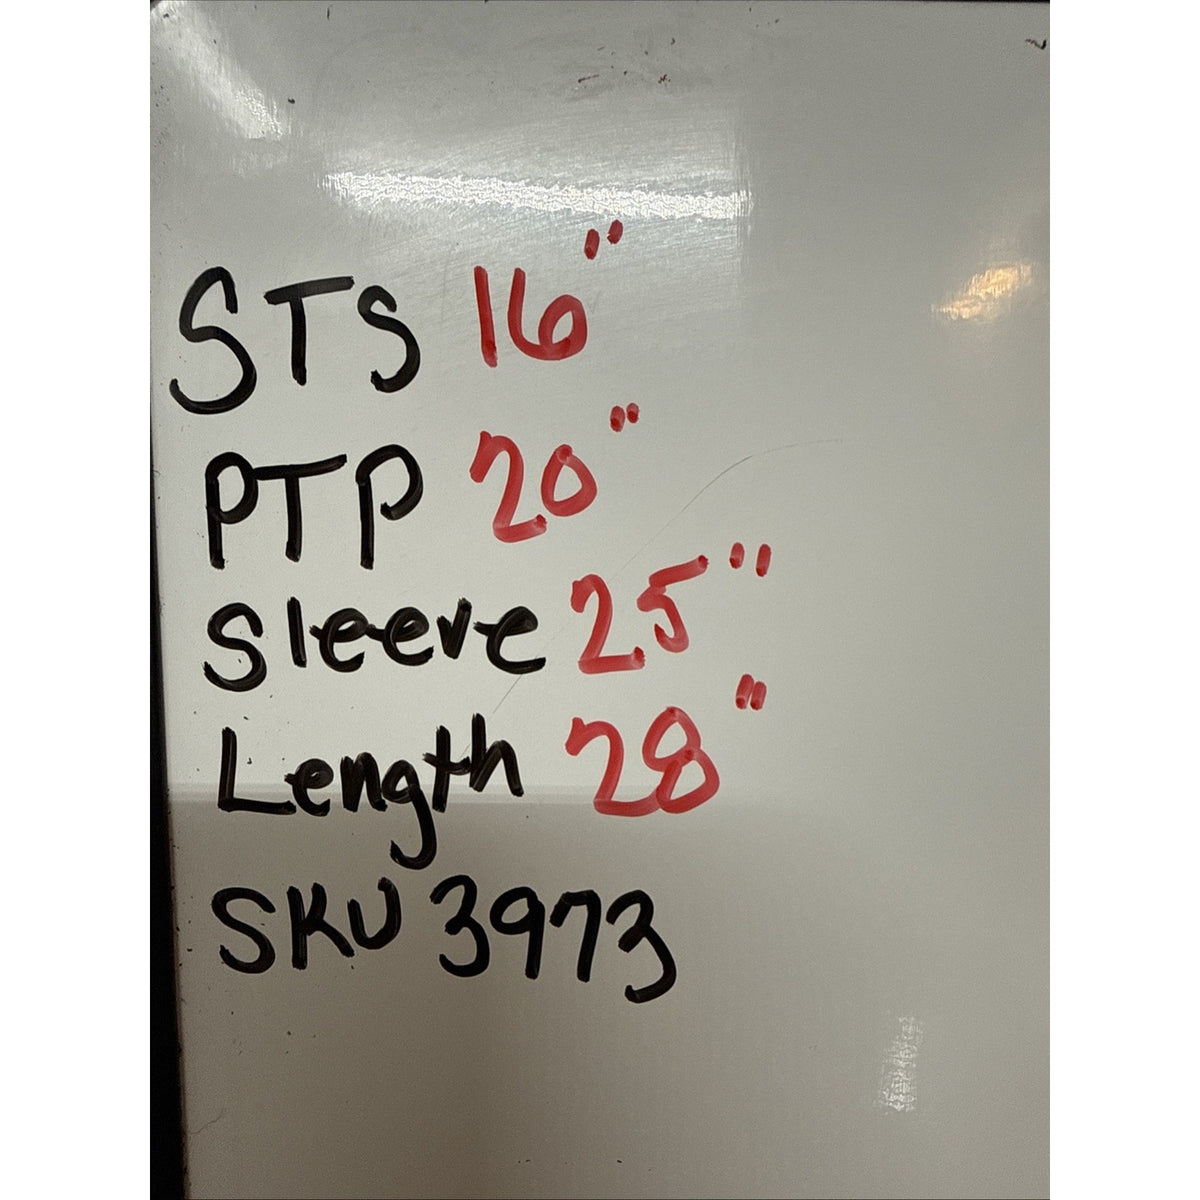 STS 16"
PTP 20"
Sleeve 25"
Length 28"
SKU 3973